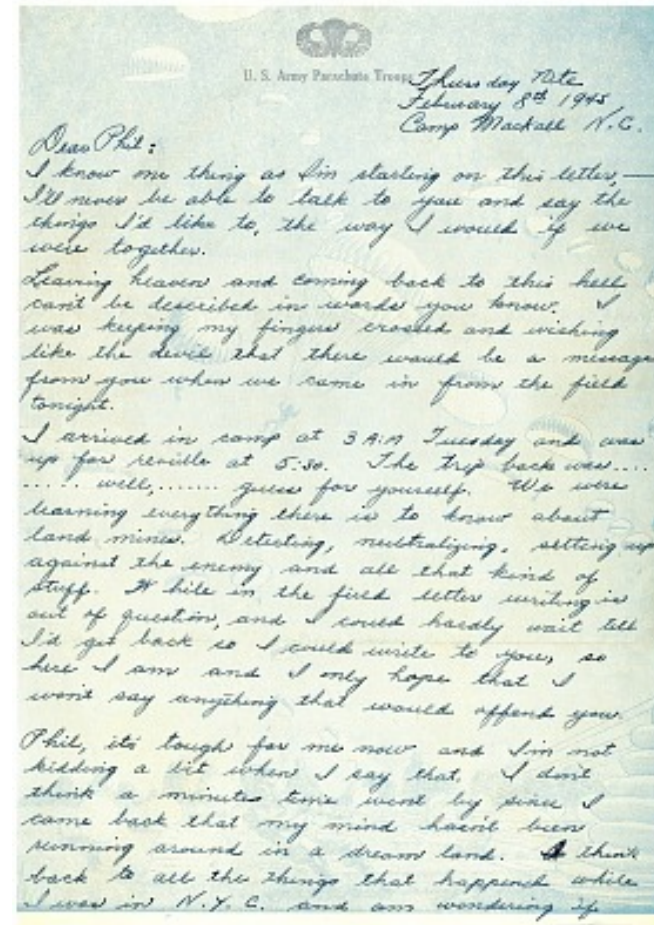 U. S. Army Parachute Troops
Thursday Nite
February 8th 1945
Camp Mackall N.C.
Dear Phil:
I know me thing as I'm starting on this letter,—
I'll never be able to talk to you and say the
things I'd like to, the way I would if we
were together.
Leaving heaven and coming back to this hell
can't be described in words you know. I
was keeping my fingers crossed and wishing
like the devil that there would be a message
from you when we came in from the field
tonight.
I arrived in camp at 3 A.M Tuesday and was
up for reville at 5:30. The trip back was....
..... well,....... guess for yourself. We were
learning everything there is to know about
land mines. Detecting, neutralizing, setting up
against the enemy and all that kind of
stuff. While in the field letter writing is
out of question, and I could hardly wait till
I'd get back so I could write to you, so
here I am and I only hope that I
won't say anything that would offend you.
Phil, it's tough for me now and I'm not
kidding a bit when I say that. I don't
think a minutes time went by since I
came back that my mind hasn't been
running around in a dream land. I think
back to all the things that happened while
I was in N.Y.C. and am wondering if